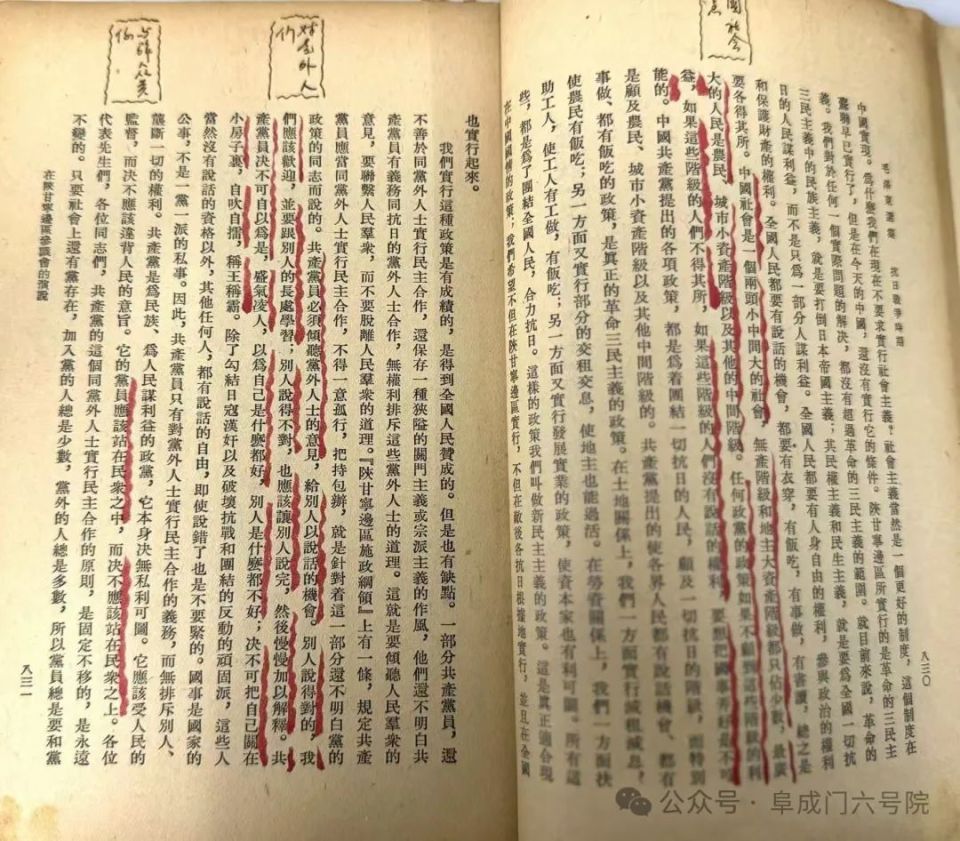 毛澤東選集　抗日戰爭時期
八三〇
中國實現。爲什麼我們在現在不要求實行社會主義?社會主義當然是一個更好的制度,這個制度在
蘇聯早已實行了,但是在今天的中國,還沒有實行它的條件。陝甘寧邊區所實行的是革命的三民主
義。我們對於任何一個實際問題的解決,都沒有超過革命的三民主義的範圍。就目前來說,革命的
三民主義中的民族主義,就是要打倒日本帝國主義;其民權主義和民生主義,就是要爲全國一切抗
日的人民謀利益,而不是只爲一部分人謀利益。全國人民都要有人身自由的權利,參與政治的權利
和保護財產的權利。全國人民都要有說話的機會,都要有衣穿,有飯吃,有事做,有書讀,總之是
要各得其所。中國社會是一個兩頭小中間大的社會,無產階級和地主大資產階級都只佔少數,最廣
大的人民是農民、城市小資產階級以及其他的中間階級。任何政黨的政策如果不顧到這些階級的利
益,如果這些階級的人們不得其所,如果這些階級的人們沒有說話的權利,要想把國事弄好是不可
能的。中國共產黨提出的各項政策,都是爲着團結一切抗日的人民,顧及一切抗日的階級,而特別
是顧及農民、城市小資產階級以及其他中間階級的。共產黨提出的使各界人民都有說話機會、都有
事做、都有飯吃的政策,是眞正的革命三民主義的政策。在土地關係上,我們一方面實行減租減息,
使農民有飯吃;另一方面又實行部分的交租交息,使地主也能過活。在勞資關係上,我們一方面扶
助工人,使工人有工做,有飯吃;另一方面又實行發展實業的政策,使資本家也有利可圖。所有這
些,都是爲了團結全國人民,合力抗日。這樣的政策我們叫做新民主主義的政策。這是眞正適合現
在中國國情的政策;我們希望不但在陝甘寧邊區實行,不但在敵後各抗日根據地實行,並且在全國
对党外人
也實行起來。
我們實行這種政策是有成績的,是得到全國人民贊成的。但是也有缺點。一部分共產黨員,還
不善於同黨外人士實行民主合作,還保存一種狹隘的關門主義或宗派主義的作風,他們還不明白共
產黨員有義務同抗日的黨外人士合作,無權利排斥這些黨外人士的道理。這就是要傾聽人民羣衆的
意見,要聯繫人民羣衆,而不要脫離人民羣衆的道理。『陝甘寧邊區施政綱領』上有一條,規定共產
黨員應當同黨外人士實行民主合作,不得一意孤行,把持包辦,就是針對着這一部分還不明白黨的
政策的同志而說的。共產黨員必須傾聽黨外人士的意見,給別人以說話的機會。別人說得對的,我
們應該歡迎,並要跟別人的長處學習;別人說得不對,也應該讓別人說完,然後慢慢加以解釋。共
產黨員決不可自以爲是,盛氣凌人,以爲自己是什麼都好,別人是什麼都不好;決不可把自己關在
小房子裏,自吹自擂,稱王稱霸。除了勾結日寇漢奸以及破壞抗戰和團結的反動的頑固派,這些人
當然沒有說話的資格以外,其他任何人,都有說話的自由,即使說錯了也是不要緊的。國事是國家的
公事,不是一黨一派的私事。因此,共產黨員只有對黨外人士實行民主合作的義務,而無排斥別人、
壟斷一切的權利。共產黨是爲民族、爲人民謀利益的政黨,它本身決無私利可圖。它應該受人民的
監督,而決不應該違背人民的意旨。它的黨員應該站在民衆之中,而決不應該站在民衆之上。各位
代表先生們,各位同志們,共產黨的這個同黨外人士實行民主合作的原則,是固定不移的,是永遠
不變的。只要社會上還有黨存在,加入黨的人總是少數,黨外的人總是多數,所以黨員總是要和黨
在陝甘寧邊區參議會的演說
八三一
公众号·阜成门六号院